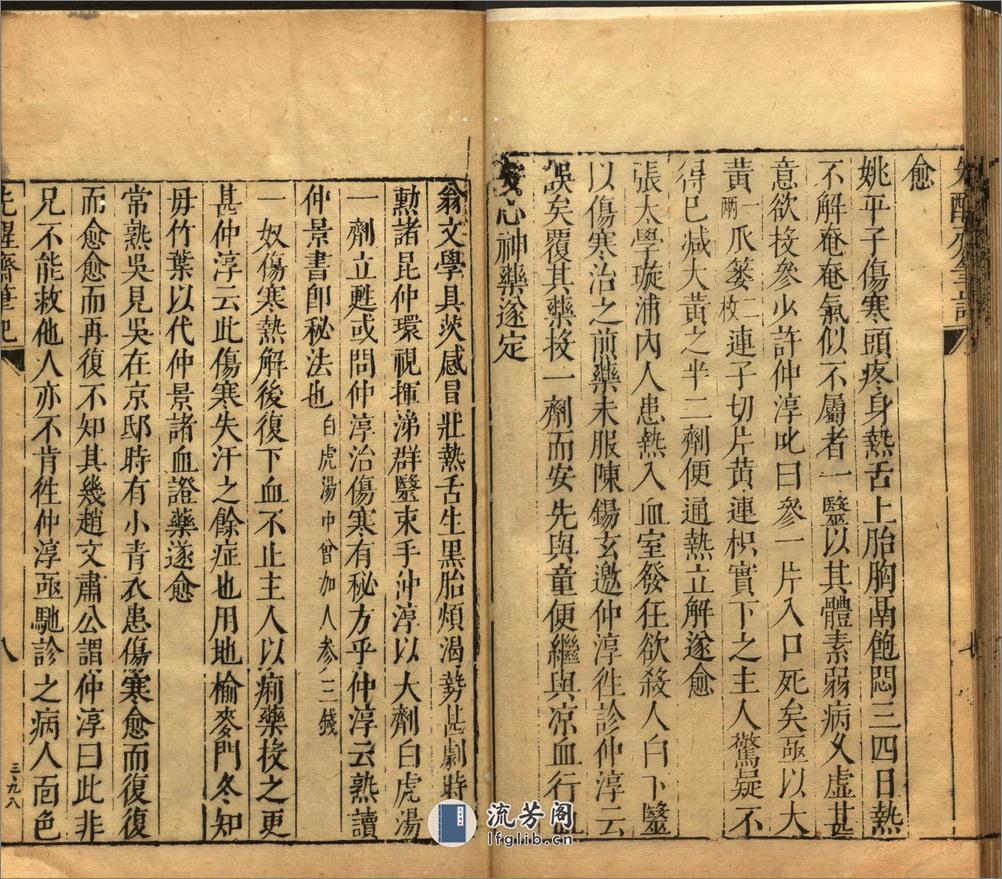 愈
姚平子傷寒頭疼身熱舌上胎胸鬲飽悶三四日熱
不解奄奄氣似不屬者一醫以其體素弱病久虛甚
意欲投參少許仲淳叱曰參一片入口死矣亟以大
黃一兩瓜蔞二枚連子切片黃連枳實下之主人驚疑不
得已減大黃之半二劑便通熱立解遂愈
張太學璇浦內人患熱入血室發狂欲殺人白下醫
以傷寒治之前藥未服陳錫玄邀仲淳徃診仲淳云
誤矣覆其藥投一劑而安先與童便繼與凉血行血
安心神藥遂定
翁文學具茨感冒壯熱舌生黑胎煩渴勢甚劇時
勳諸昆仲環視揮涕群醫束手沖淳以大劑白虎湯
一劑立甦或問仲淳治傷寒有秘方乎仲淳云熟讀
仲景書卽秘法也白虎湯中曾加人參三錢
一奴傷寒熱解後復下血不止主人以痢藥投之更
甚仲淳云此傷寒失汗之餘症也用地榆麥門冬知
毋竹葉以代仲景諸血證藥遂愈
常熟吳見吳在京邸時有小青衣患傷寒愈而復復
而愈愈而再復不知其幾趙文肅公謂仲淳曰此非
兄不能救他人亦不肯徃仲淳亟馳診之病人面色
先醒齋筆記
八
三九八
流芳阁
lfglib.cn